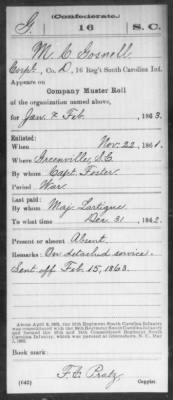 (Confederate.)
G. 16 S.C.
M. C. Gosnell
Corpl, Co. D, 16 Reg't South Carolina Inf.
Appears on
Company Muster Roll
of the organization named above,
for Jan. & Feb., 1863.
Enlisted:
When Nov. 22, 1861.
Where Greenville, S.C.
By whom Capt. Foster
Period War.
Last paid:
By whom Maj. Lartigue
To what time Dec. 31, 1862.
Present or absent Absent.
Remarks: On detached service.
Sent off Feb. 15, 1863.
Book mark:
(642) F. E. Pratz
Copyist.